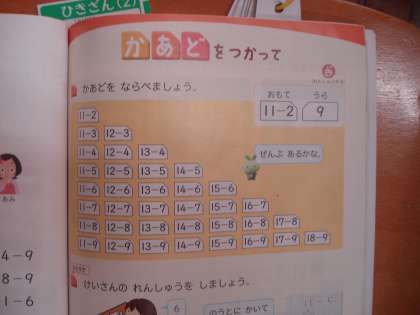 ひきざん(2)
かあどをつかって
かあどを ならべましょう。
おもて うら
11-2 9
11-2
11-3 12-3
11-4 12-4 13-4
ぜんぶ あるかな。
11-5 12-5 13-5 14-5
11-6 12-6 13-6 14-6 15-6
11-7 12-7 13-7 14-7 15-7 16-7
11-8 12-8 13-8 14-8 15-8 16-8 17-8
11-9 12-9 13-9 14-9 15-9 16-9 17-9 18-9
けいさんの れんしゅうを しましょう。
6
のうとに かいて
あみ
4-9
8-9
1-6